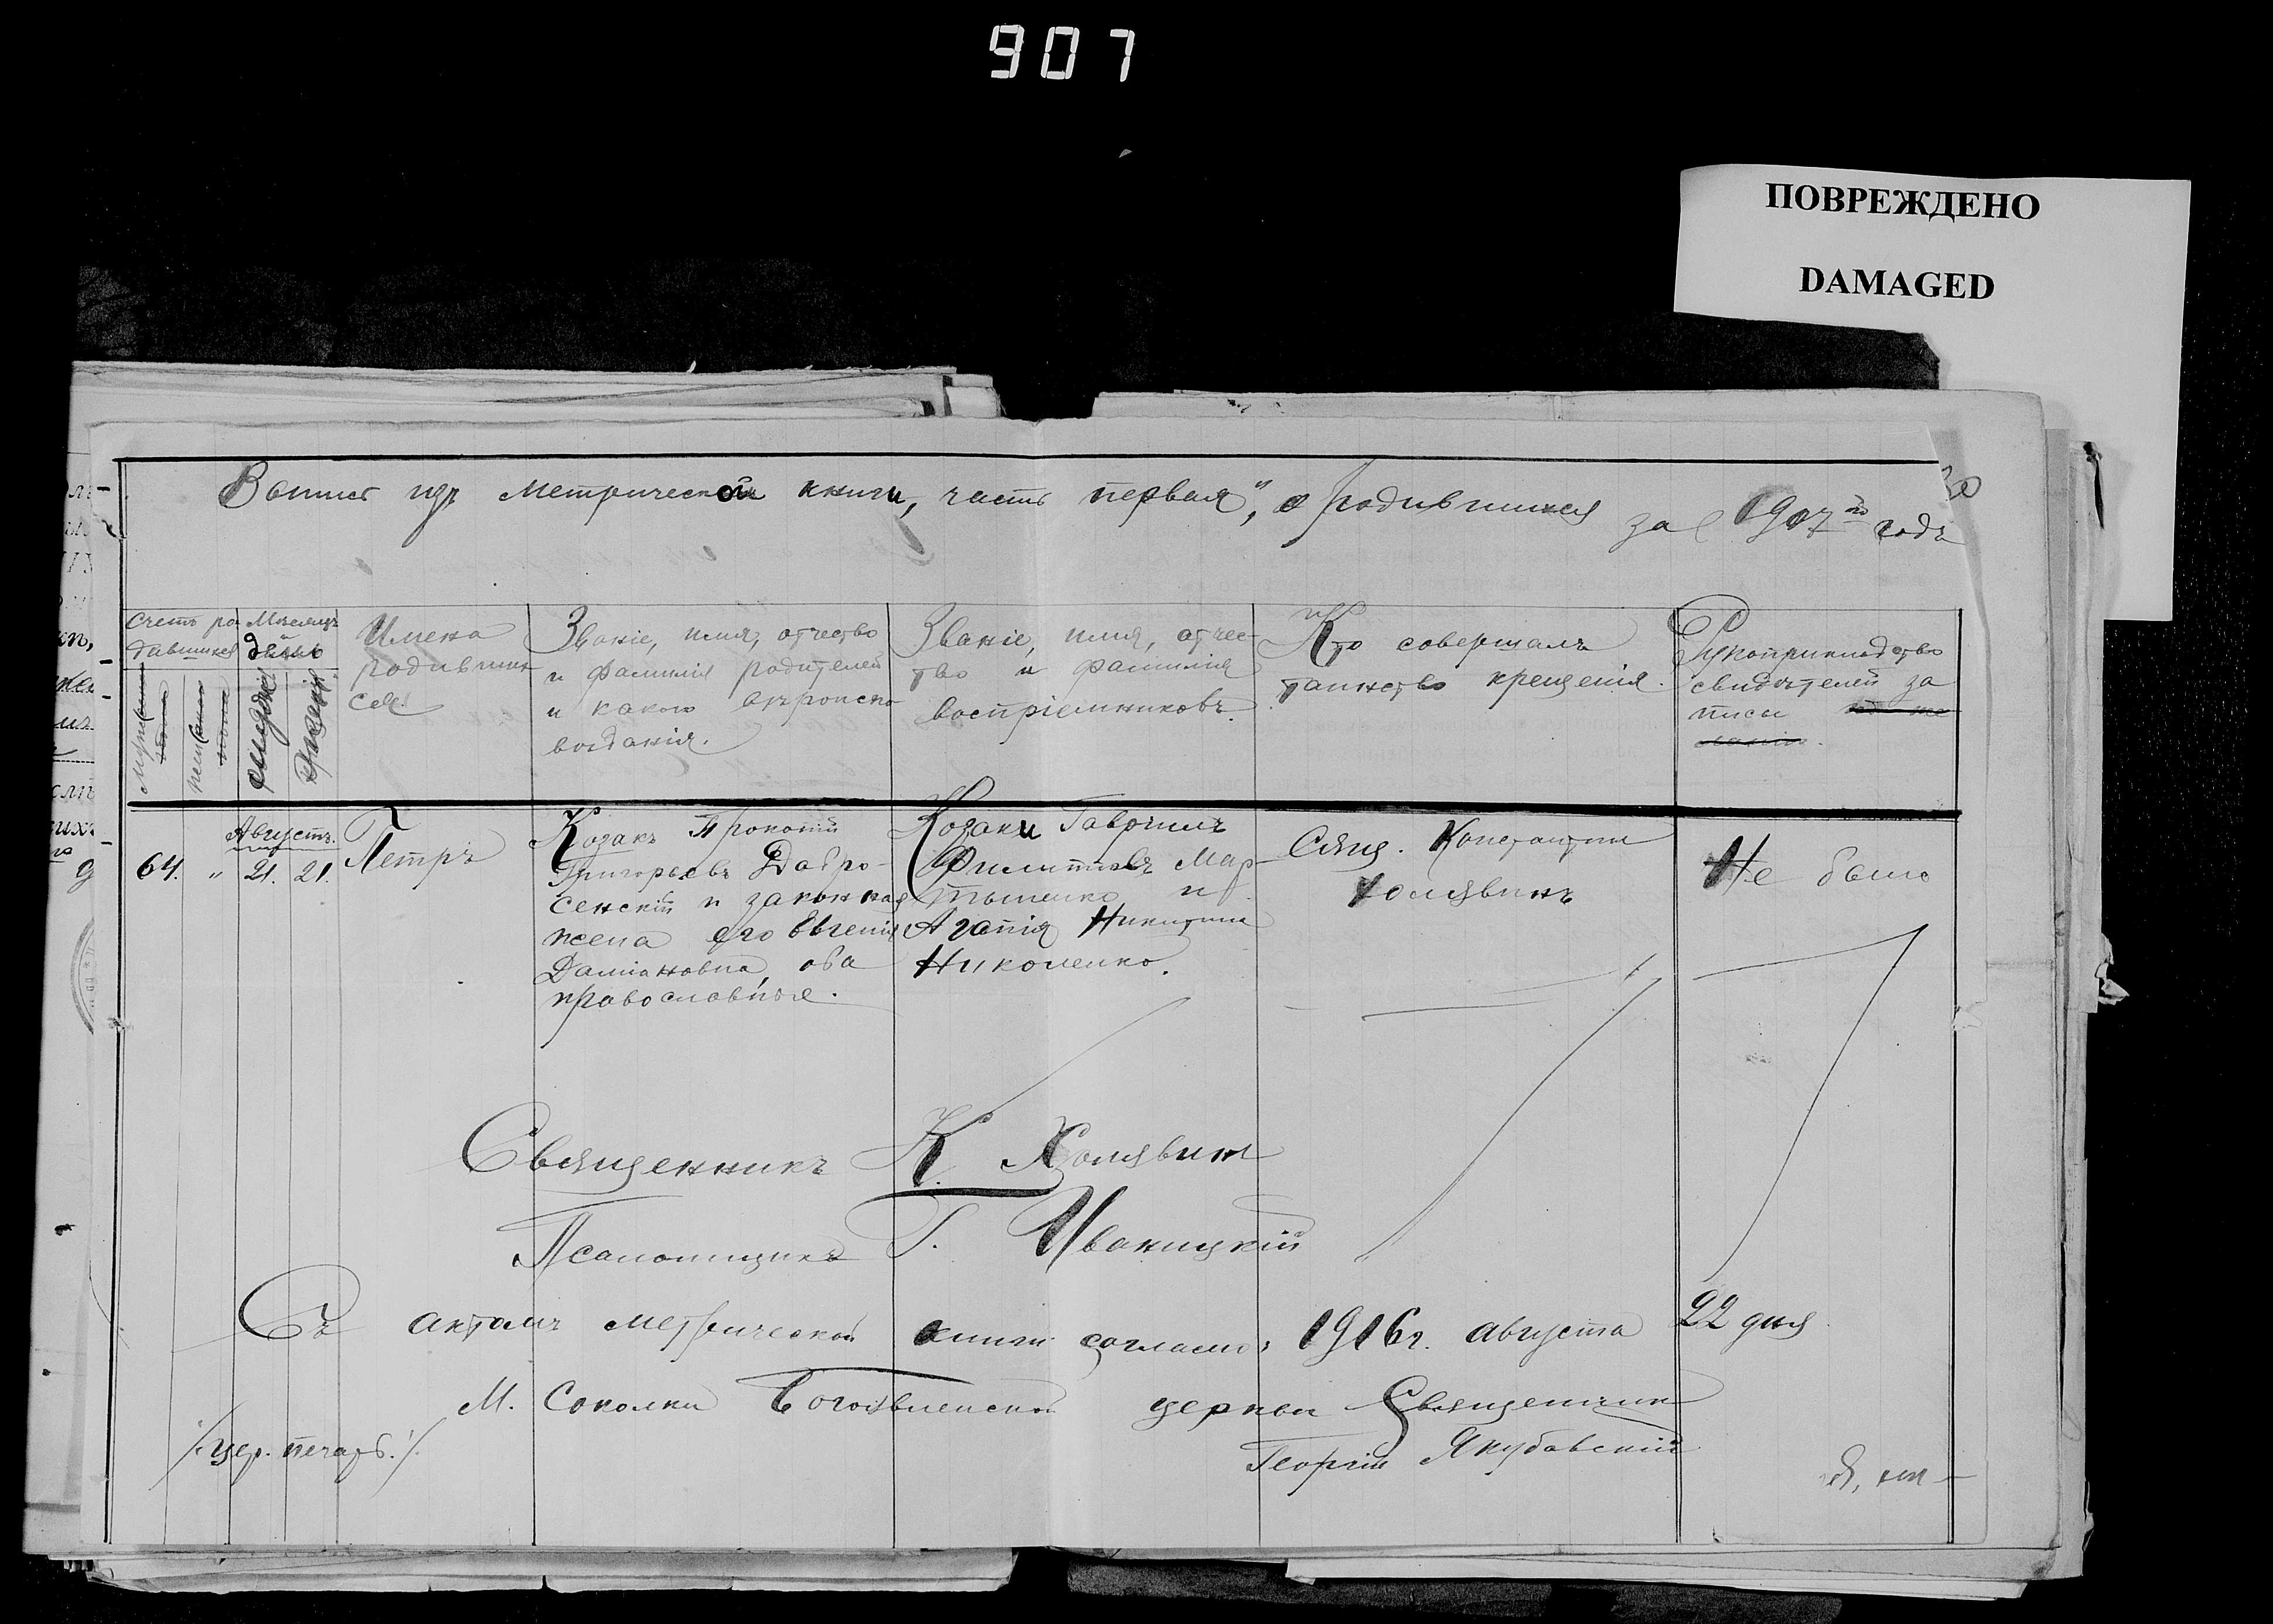 907
ПОВРЕЖДЕНО
DAMAGED
Вопись изъ метрической книги, часть первая, о родившихся за 1907й годъ
Счетъ ро
дившихся
Мѣсяцъ
день
Имена
родивших
ся.
Званіе, имя, отчество
и фамилія родителей
и какого вѣроиспо
вѣданія.
Званіе, имя, отчес-
тво и фамилія
воспріемниковъ.
Кто совершалъ
таинство крещенія.
Рукоприкладство
свидѣтелей за
писи
рожденія
крещенія
Августъ.
64. " 21. 21.
Петръ
Козакъ Прокопій
Григорьевъ Добро-
сенскій и законная
жена его Евгенія
Даміановна, оба
православные.
Козаки Гавріилъ
Филипповъ Мар-
тыненко и
Агапія Никитина
Николенко.
Свящ. Константин
Холявинъ
Не было
Священникъ К. Холявин
Псаломщикъ Г. Иваницкій
Съ актомъ метрической книги согласно: 1916г. августа 22 дня
М. Соколки Богоявленской церкви Священник
/цер. печать./
Георгій Якубовский